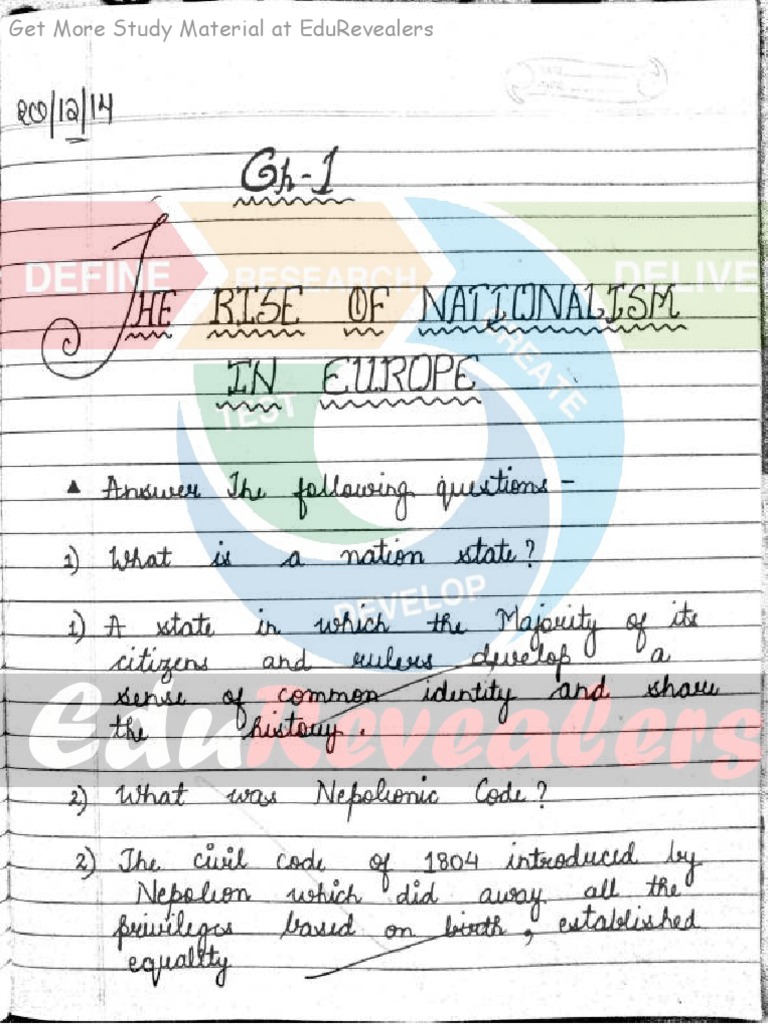 Get More Study Material at EduRevealers
20/12/14
Ch-1
DEFINE RESEARCH DELIVE
THE RISE OF NATIONALISM
CREATE
IN EUROPE
TEST
▲ Answer The following questions -
1) What is a nation state?
DEVELOP
1) A state in which the Majority of its
citizens and rulers develop a
sense of common identity and share
the history.
EduRevealers
2) What was Nepolionic Code?
2) The civil code of 1804 introduced by
Nepolion which did away all the
privileges based on birth, established
equality